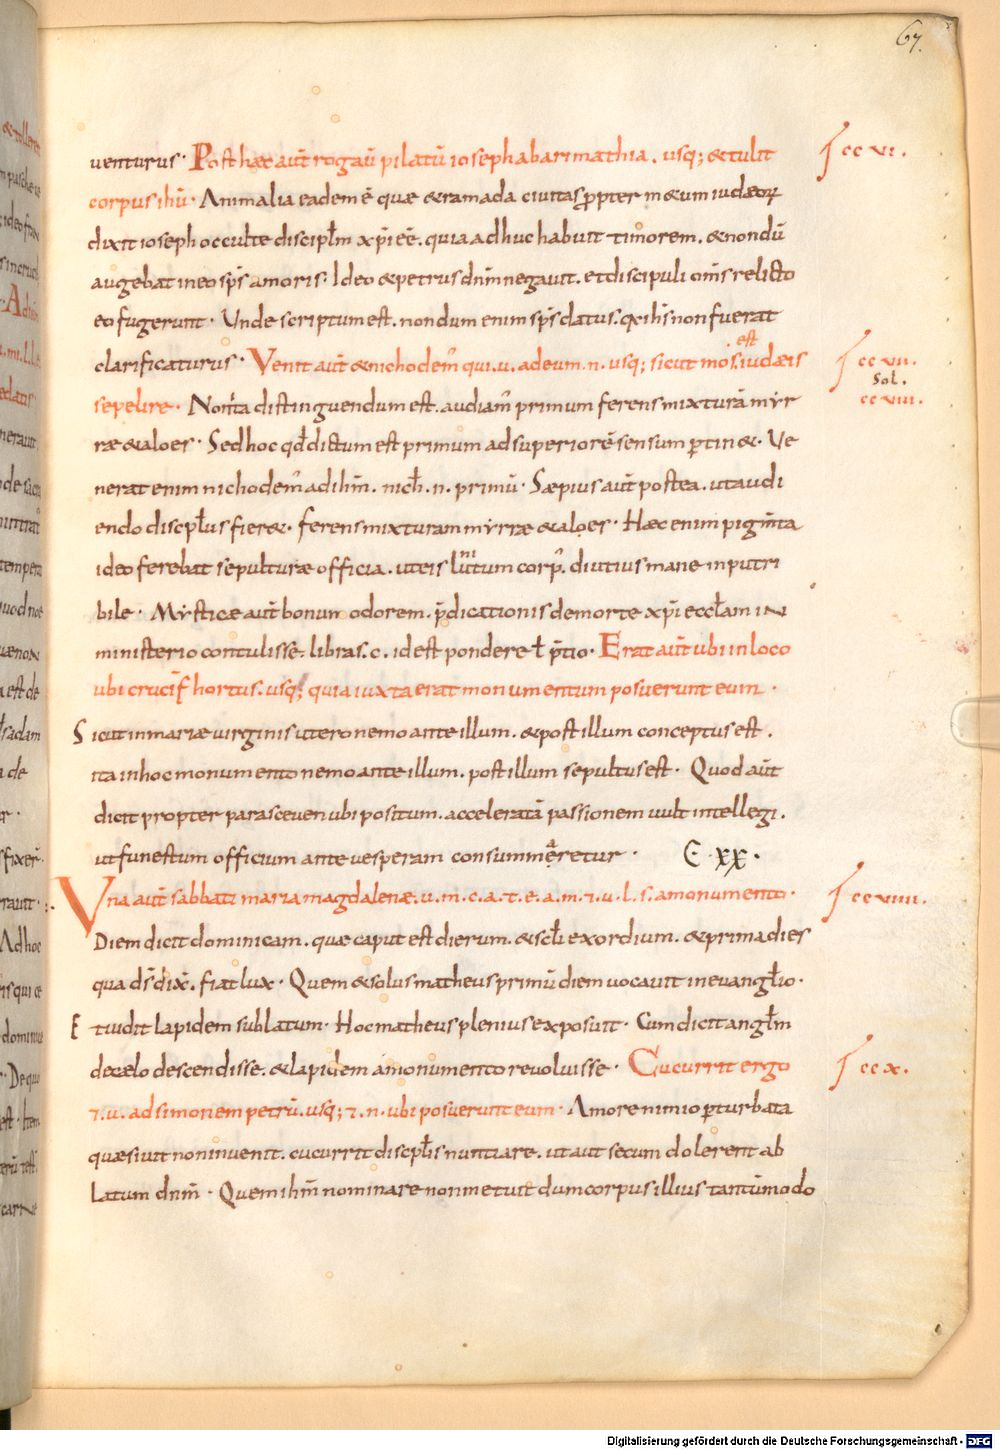 67.
uenturus · Post haec aut̄ rogau̅ pilatū ioseph ab arimathia . usq; & tulit
ccvi.
corpus ihū · Animalia eadem ē quae & ramada ciuitas propter m&um iudaeorum
dixit ioseph occulte discipl̄m xp̄i eē . quia adhuc habuit timorem . & nondū
augebat in eo sp̄s amoris · Ideo & petrus dnm̄ negauit . et discipuli om̄s relicto
eo fugerunt · Unde scriptum est . nondum enim sp̄s datus . q̄a ih̄s non fuerat
clarificaturus · Venit aut̄ & nichodem' qui . u . ad eum . n . usq; sicut mos est iudaeis
ccvii.
Sol.
sepelire · Non ita distinguendum est . audiam' primum ferens mixturā myr
ccviii.
rae & aloes · Sed hoc qđ dictum est primum ad superiorē sensum ptin& · Ve
nerat enim nichodem' ad ihm̄ . nich . n . primū · Saepius aut̄ postea . ut audi
endo discpl̄us fier& · ferens mixturam myrrae & aloes · Haec enim pigm̄ta
ideo ferebat sepulturae officia . ut eis corp' . diutius mane inputri
bile · Mysticae aut̄ bonum odorem . p̄dicationis de morte xp̄i eccl̄am in
ministerio contulisse . libras . c . id est pondere ł p̄tio · Erat aut̄ ubi in loco
ubi crucif̄ hortus . usq; quia iuxta erat monumentum posuerunt eum ·
Sicut in mariae uirginis utero nemo ante illum . & post illum conceptus est .
ita in hoc monumento nemo ante illum . post illum sepultus est · Quod aut̄
dicit propter parasceuen ubi positum . acceleratā passionem uult intellegi .
ut funestum officium ante uesperam consummaretur · E · xx ·
Vna aut̄ sabbati maria magdalenae . u . m . c . a . t . e . a . m . ⁊ . u . l . s . a monumento ·
ccviiii.
Diem dicit dominicam . quae caput est dierum . & scl̄i exordium . & prima dies
qua d̄s dix̄ . fiat lux · Quem & solus matheus primū diem uocauit in euangl̄io ·
Et uidit lapidem sublatum · Hoc matheus plenius exposuit · Cum dicit angl̄m
de caelo descendisse . & lapidem a monumento reuoluisse · Cucurrit ergo
ccx.
⁊ . u . ad simonem petrū . usq; ⁊ . n . ubi posuerunt eum · Amore nimio pturbata
quaesiuit non inuenit . cucurrit discpl̄is nuntiare . ut aut secum dolerent ab
latum dnm̄ · Quem ihm̄ nominare non metuit dum corpus illius tantūmodo
Digitalisierung gefördert durch die Deutsche Forschungsgemeinschaft - DFG